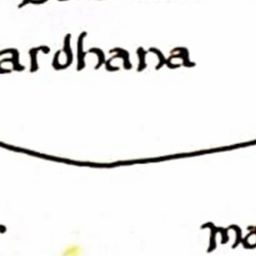 ardhana
ma